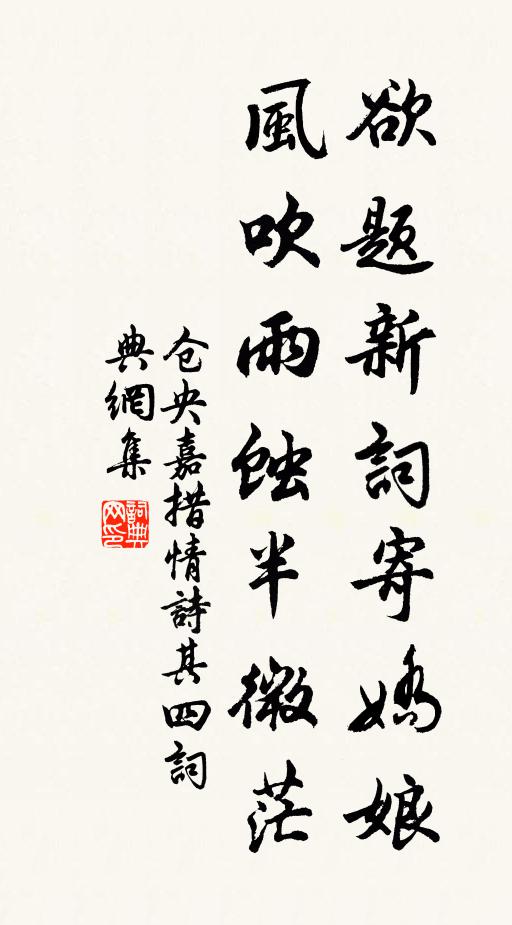 欲题新詞寄嬌娘
風吹雨蝕半微茫
仓央嘉措情詩其四詞
典網集
詞典网印